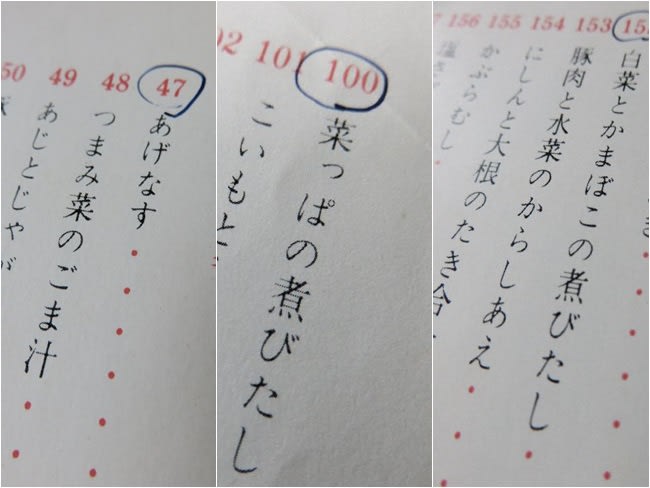 47 あげなす
48 つまみ菜のごま汁
49 あじとじゃが
50
100 菜っぱの煮びたし
101 こいもと
02
15
白菜とかまぼこの煮びたし
153 豚肉と水菜のからしあえ
154 にしんと大根のたき合
155 かぶらむし
156 塩さ